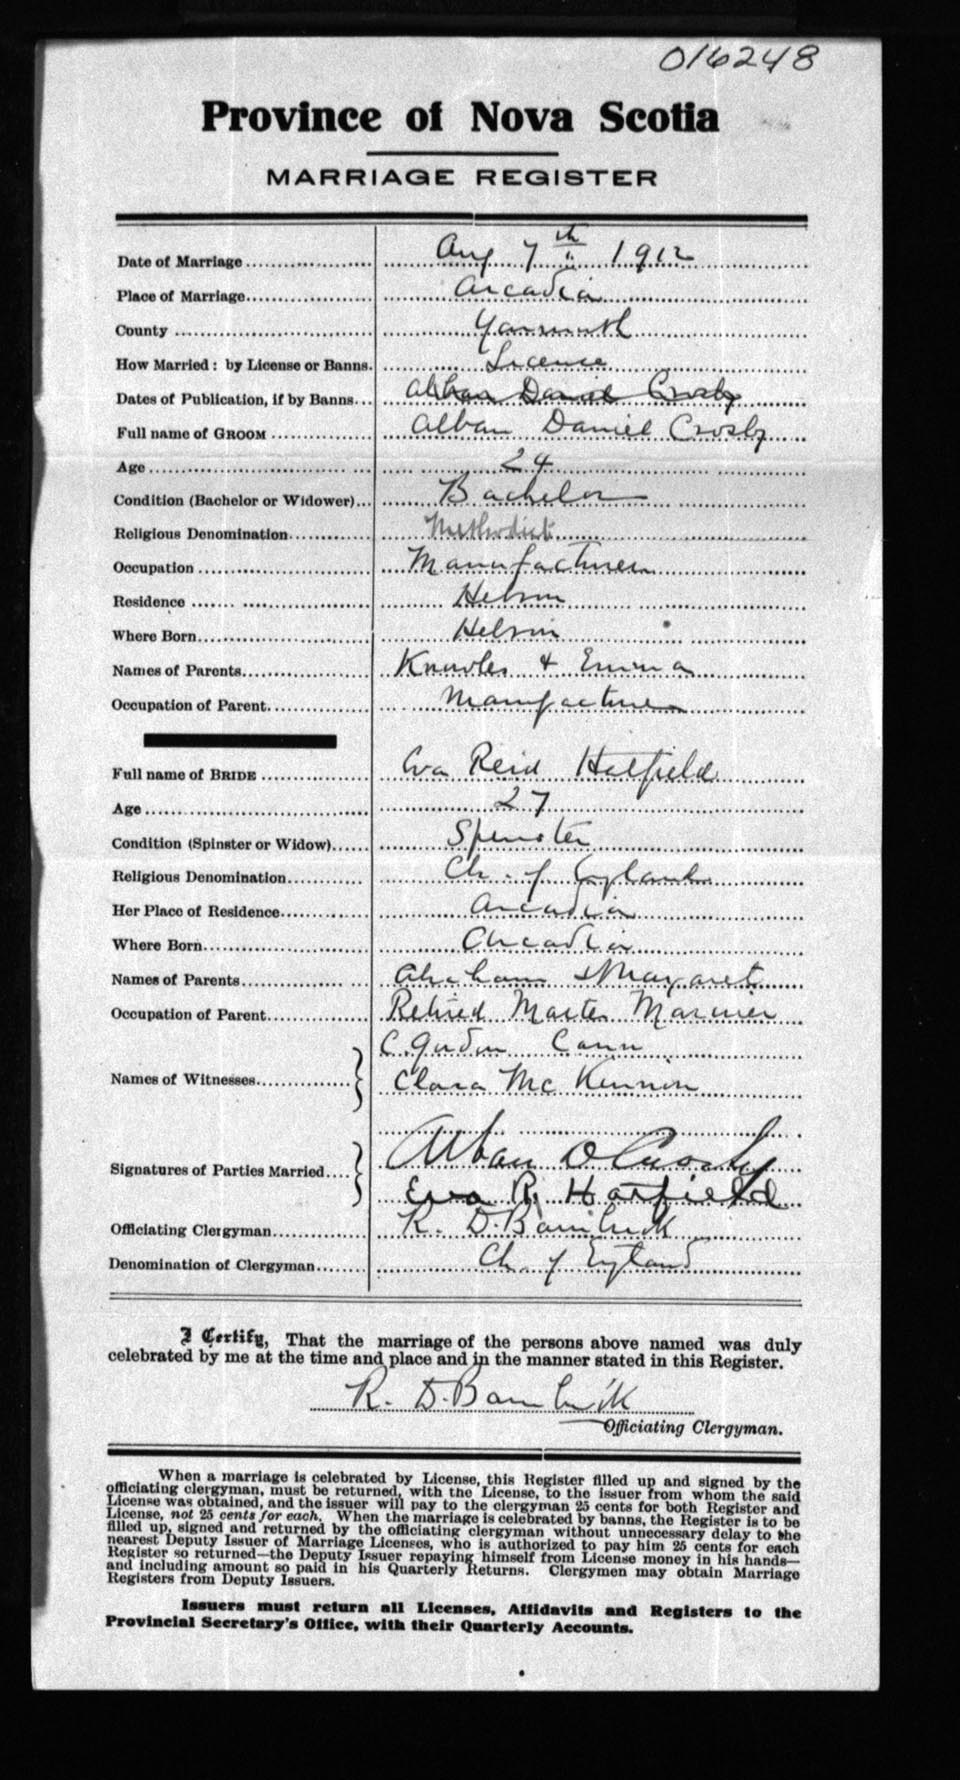 016248
Province of Nova Scotia
MARRIAGE REGISTER
Date of Marriage Aug 7th 1912
Place of Marriage Arcadia
County Yarmouth
How Married: by License or Banns. Licence
Dates of Publication, if by Banns Alban Daniel Crosby
Full name of GROOM Alban Daniel Crosby
Age 24
Condition (Bachelor or Widower) Bachelor
Religious Denomination Methodist
Occupation Manufacturer
Residence Hebron
Where Born Hebron
Names of Parents Knowles & Emma
Occupation of Parent Manufacturer
Full name of BRIDE Eva Reid Hatfield
Age 27
Condition (Spinster or Widow) Spinster
Religious Denomination Ch. of England
Her Place of Residence Arcadia
Where Born Arcadia
Names of Parents Abraham & Margaret
Occupation of Parent Retired Master Mariner
C. Gordon Cann
Names of Witnesses Clara McKinnon
Signatures of Parties Married Alban D Crosby
Eva R. Hatfield
Officiating Clergyman R. D. Bambrick
Denomination of Clergyman Ch. of England
I Certify, That the marriage of the persons above named was duly
celebrated by me at the time and place and in the manner stated in this Register.
R. D. Bambrick
Officiating Clergyman.
When a marriage is celebrated by License, this Register filled up and signed by the
officiating clergyman, must be returned, with the License, to the issuer from whom the said
License was obtained, and the issuer will pay to the clergyman 25 cents for both Register and
License, not 25 cents for each. When the marriage is celebrated by banns, the Register is to be
filled up, signed and returned by the officiating clergyman without unnecessary delay to the
nearest Deputy Issuer of Marriage Licenses, who is authorized to pay him 25 cents for each
Register so returned—the Deputy Issuer repaying himself from License money in his hands—
and including amount so paid in his Quarterly Returns. Clergymen may obtain Marriage
Registers from Deputy Issuers.
Issuers must return all Licenses, Affidavits and Registers to the
Provincial Secretary's Office, with their Quarterly Accounts.